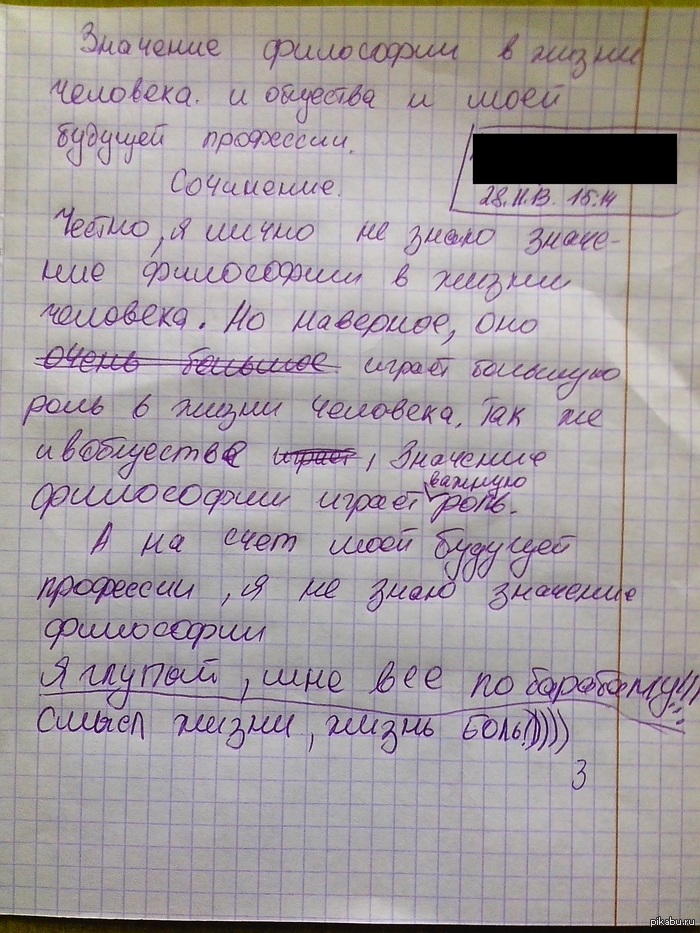 Значение философии в жизни
человека. и общества и моей
будущей профессии.
28.11.13. 15:14
Сочинение.
Честно, я лично не знаю значе-
ние философии в жизни
человека. Но наверное, оно
очень большое играет большую
роль в жизни человека. Так же
и в обществе играет, Значение
философии играет важную роль.
А на счет моей будущей
профессии, я не знаю значение
философии
Я глупый, мне все по барабану!!!
смысл жизни, жизнь боль!)))))
3
pikabu.ru